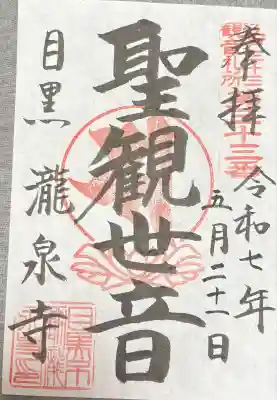 奉拝
令和七年
五月二十一日
聖観世音
目黒 瀧泉寺